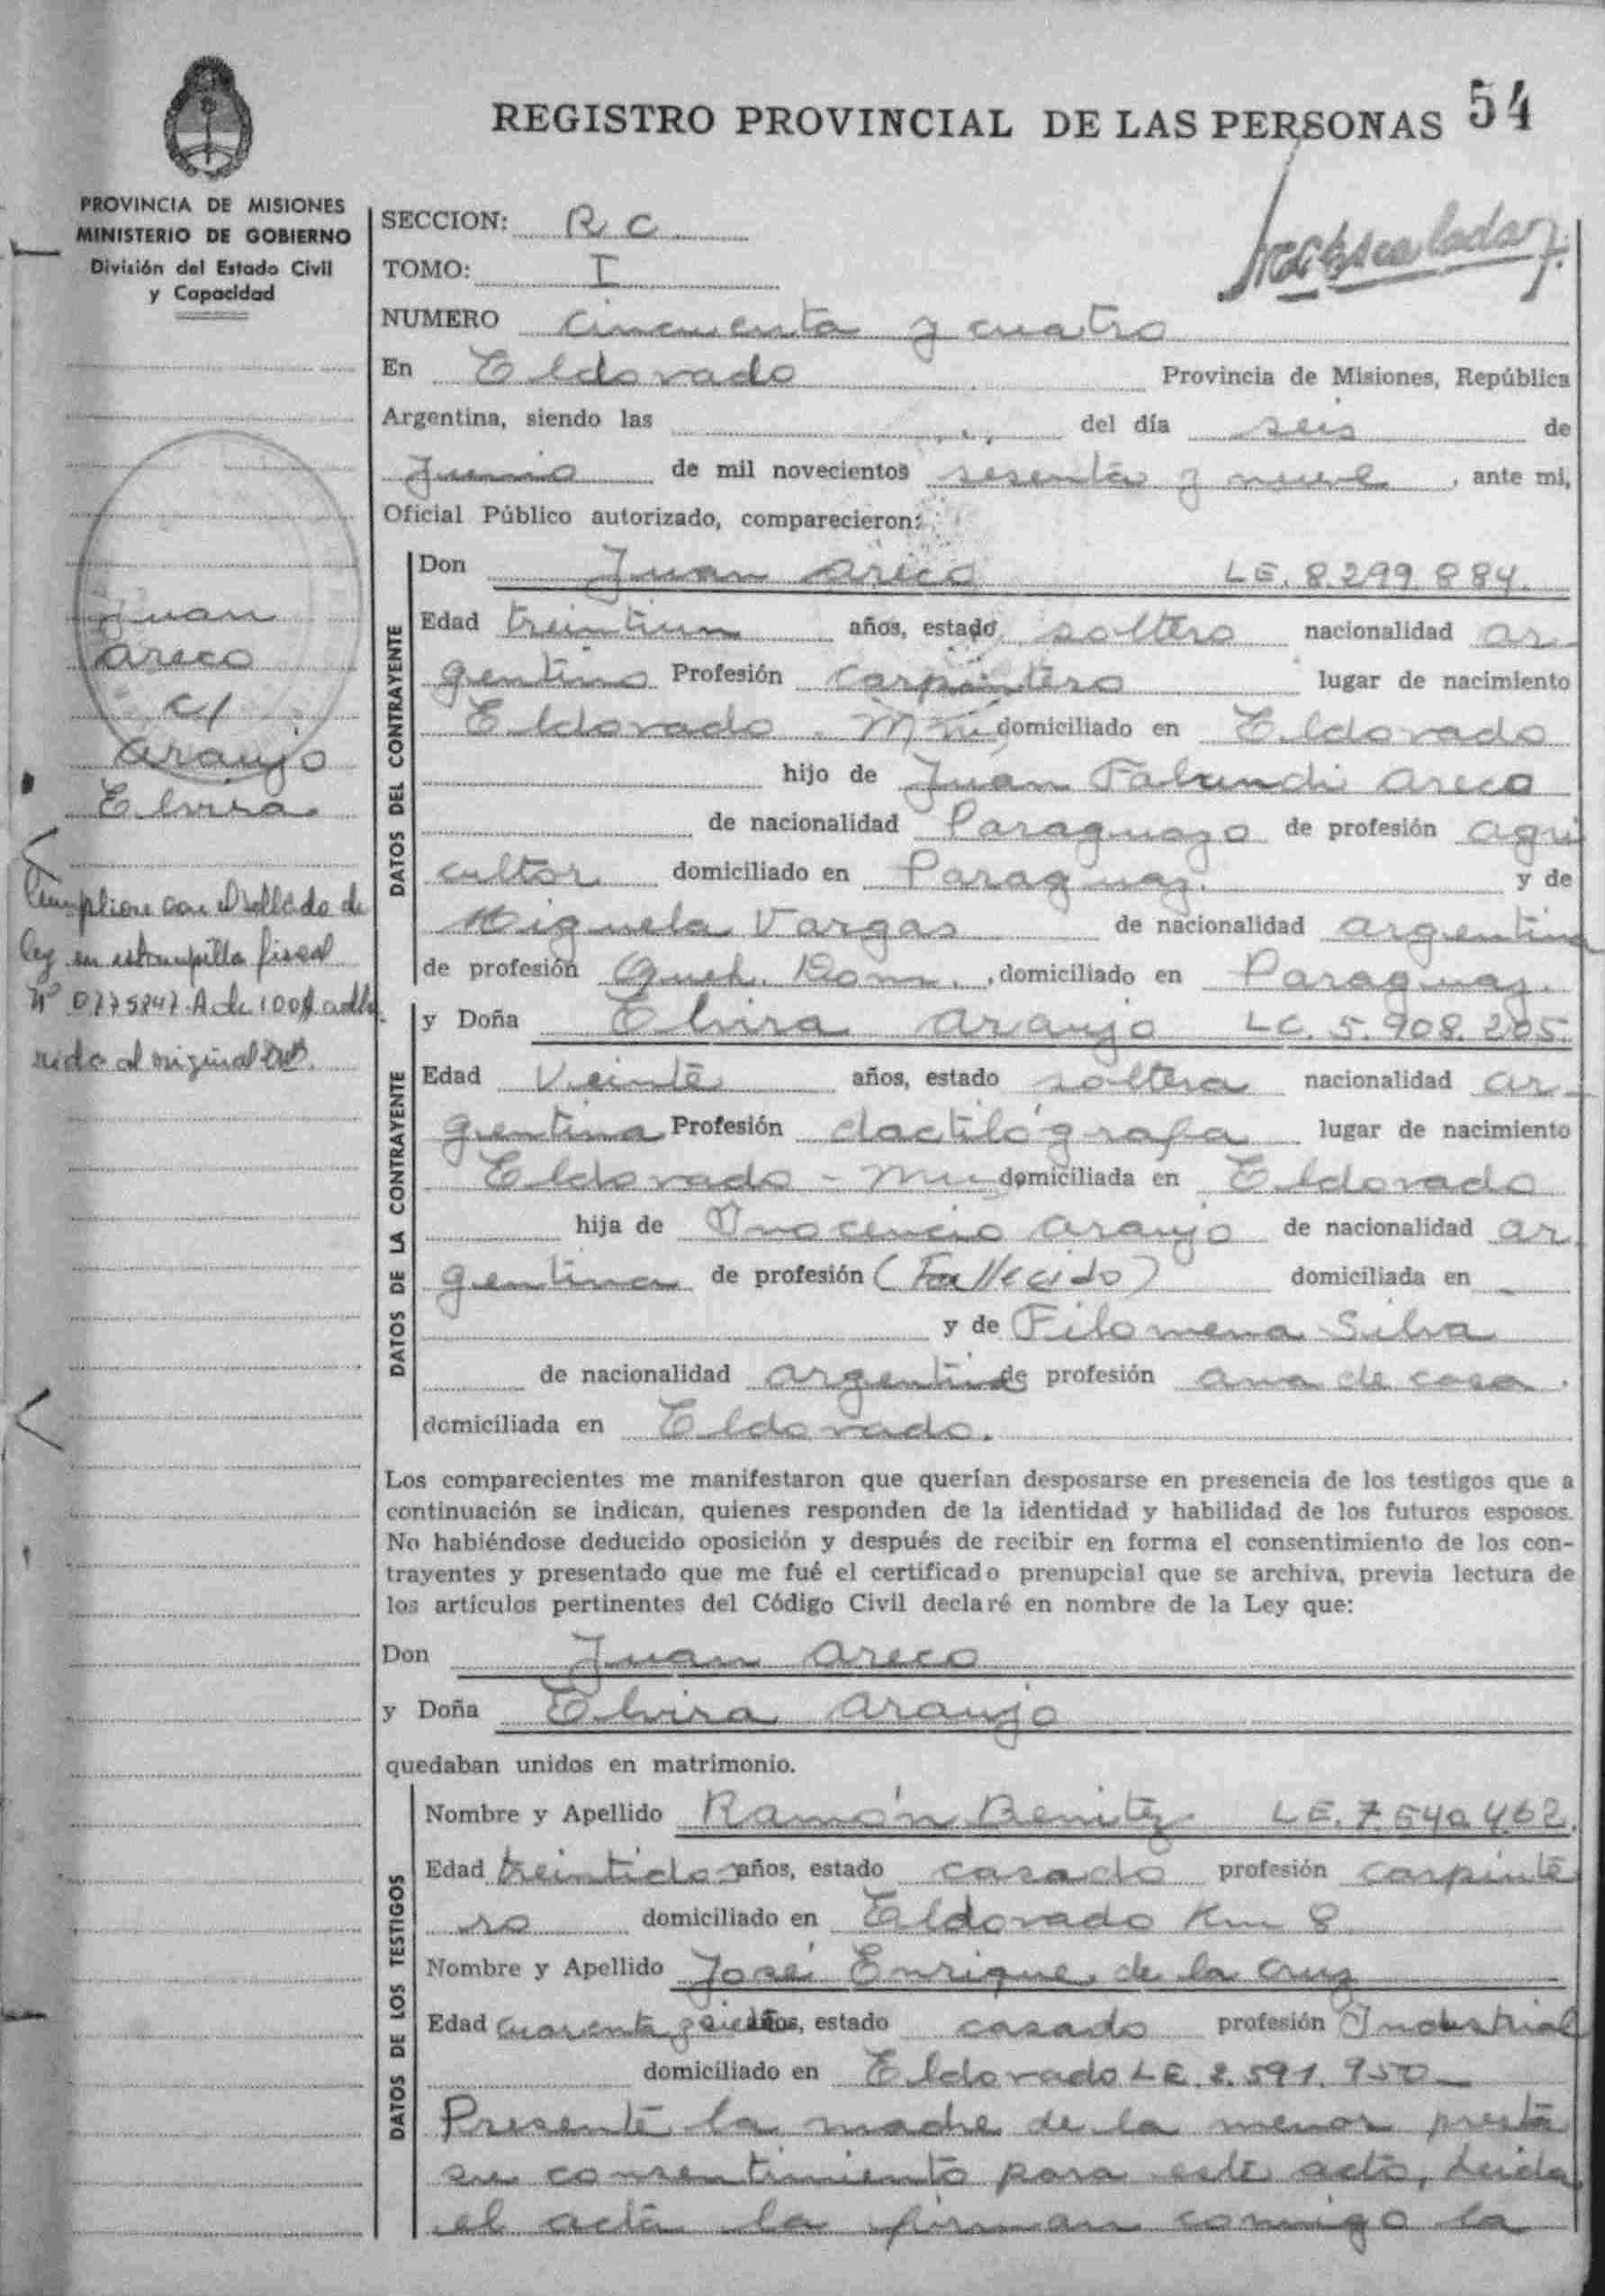 REGISTRO PROVINCIAL DE LAS PERSONAS 54
PROVINCIA DE MISIONES
MINISTERIO DE GOBIERNO
División del Estado Civil
y Capacidad
Juan
Areco
c/
Araujo
Elvira
Cumplióse con el sellado de
ley en estampilla fiscal
Nº 0775847-A de 100$ adhe
rida al original
SECCION: R C
TOMO: I
NUMERO cincuenta y cuatro
En Eldorado Provincia de Misiones, República
Argentina, siendo las del día seis de
Junio de mil novecientos sesenta y nueve, ante mi,
Oficial Público autorizado, comparecieron:
DATOS DEL CONTRAYENTE
Don Juan Areco LE. 8299884.
Edad treintiun años, estado soltero nacionalidad ar
gentino Profesión carpintero lugar de nacimiento
Eldorado - Mnes domiciliado en Eldorado
hijo de Juan Areco
de nacionalidad Paraguayo de profesión agri
cultor domiciliado en Paraguay. y de
Miguela Vargas de nacionalidad argentina
de profesión Queh. Dom., domiciliado en Paraguay.
DATOS DE LA CONTRAYENTE
y Doña Elvira Araujo LC. 5.908.205.
Edad Veinte años, estado soltera nacionalidad ar
gentina Profesión dactilógrafa lugar de nacimiento
Eldorado - Mnes domiciliada en Eldorado
hija de Inocencio Araujo de nacionalidad ar
gentina de profesión (Fallecido) domiciliada en
y de Filomena Silva
de nacionalidad argentina de profesión ama de casa.
domiciliada en Eldorado.
Los comparecientes me manifestaron que querían desposarse en presencia de los testigos que a
continuación se indican, quienes responden de la identidad y habilidad de los futuros esposos.
No habiéndose deducido oposición y después de recibir en forma el consentimiento de los con-
trayentes y presentado que me fué el certificado prenupcial que se archiva, previa lectura de
los artículos pertinentes del Código Civil declaré en nombre de la Ley que:
Don Juan Areco
y Doña Elvira Araujo
quedaban unidos en matrimonio.
DATOS DE LOS TESTIGOS
Nombre y Apellido Ramón Benitez LE. 7.540.462.
Edad treintidos años, estado casado profesión carpinte
ro domiciliado en Eldorado Km 8
Nombre y Apellido José Enrique de la Cruz
Edad cuarenta y siete años, estado casado profesión Industrial
domiciliado en Eldorado LE 2.591.950
Presente la madre de la menor presta
su consentimiento para este acto, Leida
el acta la firman conmigo la